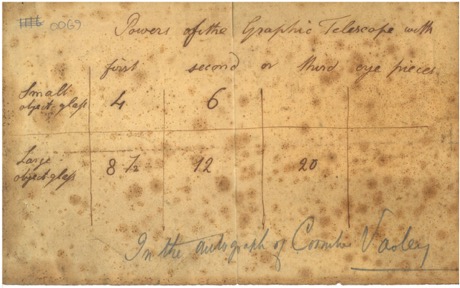 0069
Powers of the Graphic Telescope with
first second or third eye pieces
Small
object glaſs 4 6
Large
object glaſs 8 ½ 12 20
In the autograph of Varley